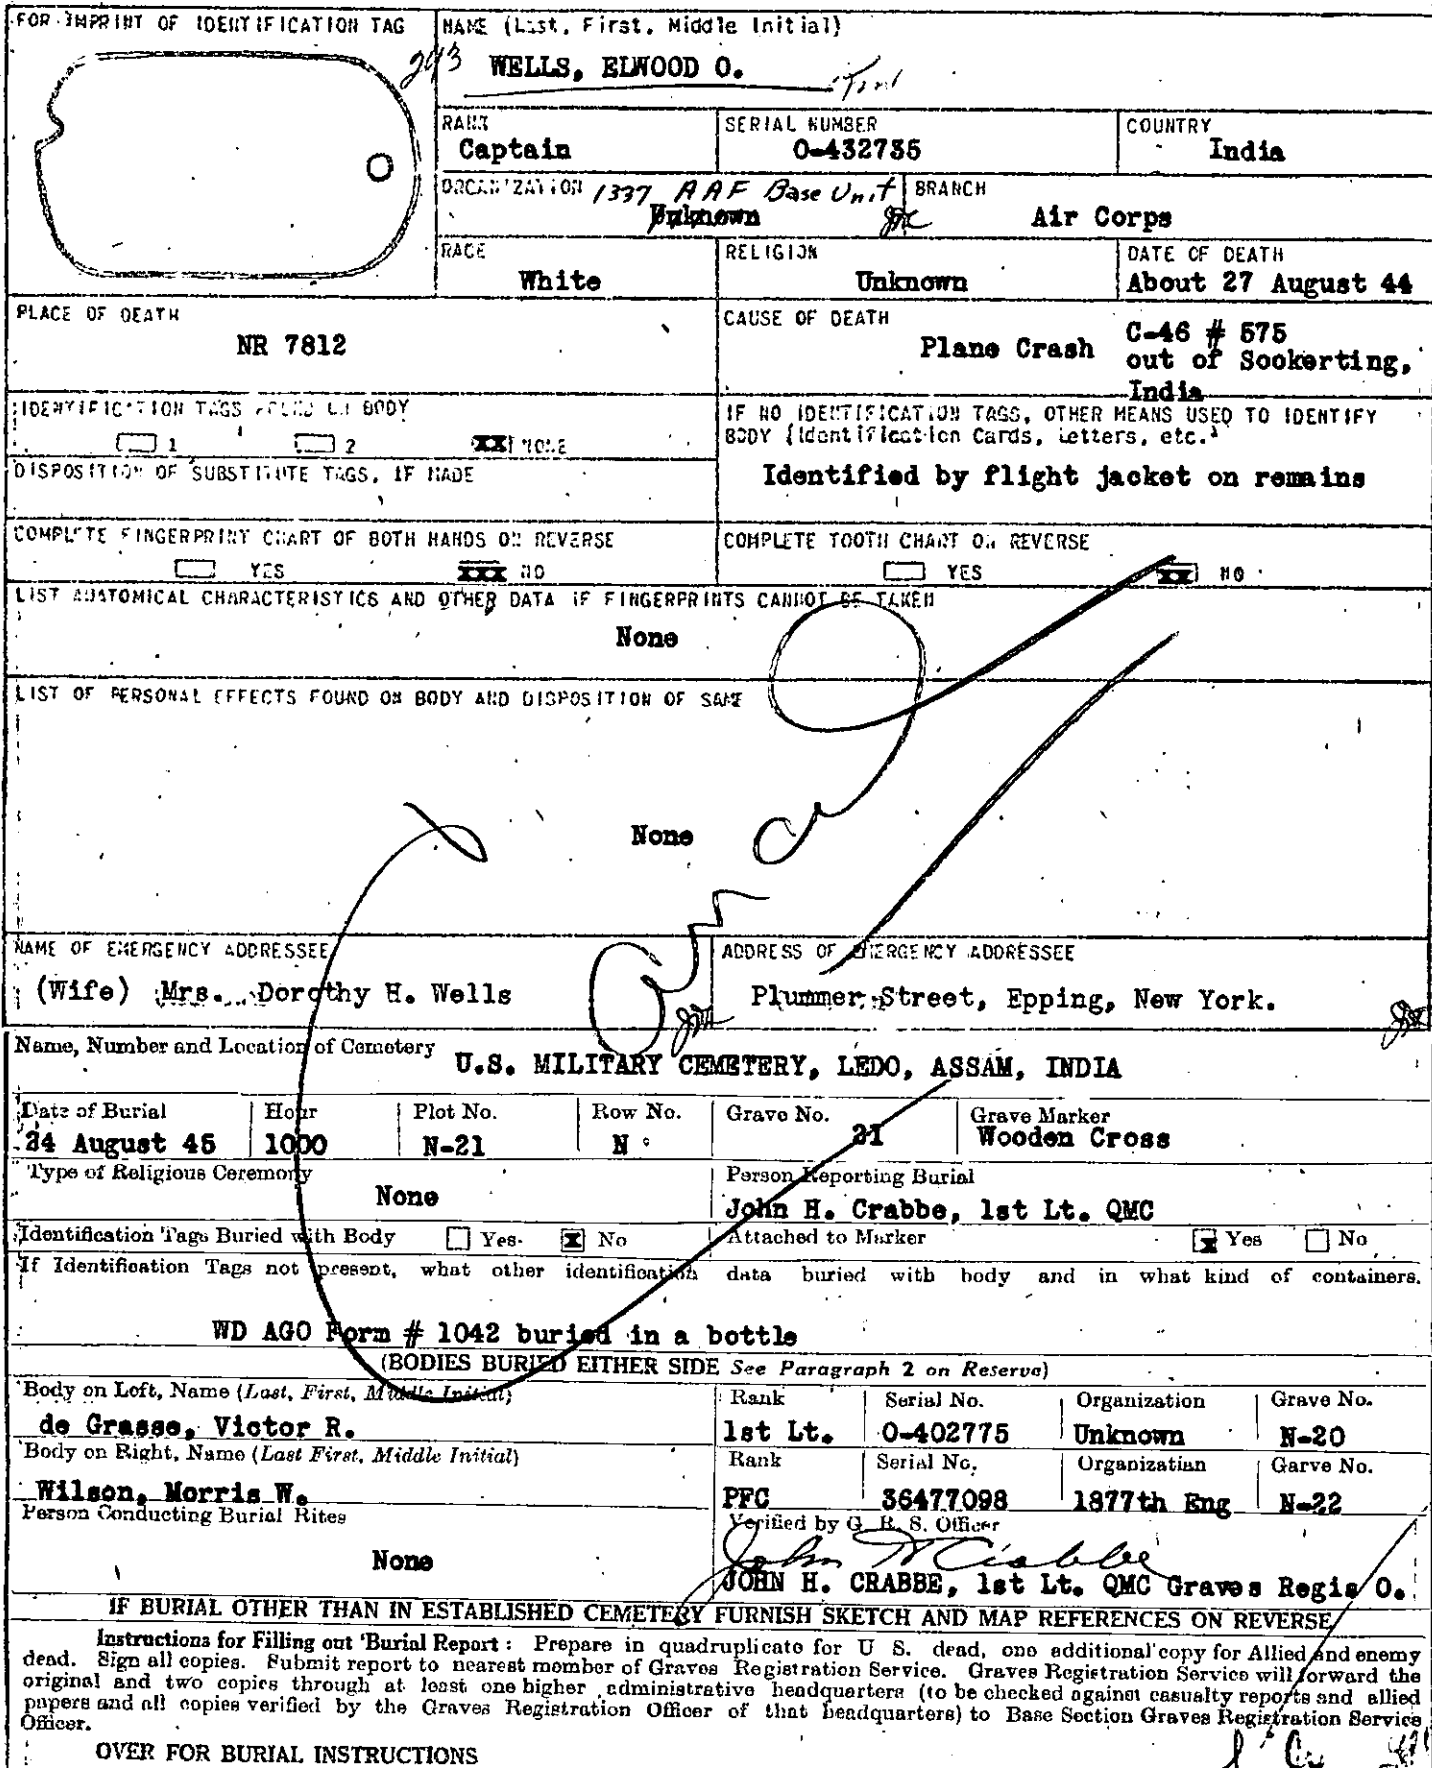 FOR IMPRINT OF IDENTIFICATION TAG
NAME (Last, First, Middle Initial)
243 WELLS, ELWOOD O.
RANK
Captain
SERIAL NUMBER
O-432735
COUNTRY
India
ORGANIZATION 1337 AAF Base Unit
Unknown
BRANCH
Air Corps
RACE
White
RELIGION
Unknown
DATE OF DEATH
About 27 August 44
PLACE OF DEATH
NR 7812
CAUSE OF DEATH
Plane Crash C-46 # 575
out of Sookerting,
India
IDENTIFICATION TAGS FOUND ON BODY
1 2 XX NONE
IF NO IDENTIFICATION TAGS, OTHER MEANS USED TO IDENTIFY
BODY (Identification Cards, Letters, etc.)
Identified by flight jacket on remains
DISPOSITION OF SUBSTITUTE TAGS, IF MADE
COMPLETE FINGERPRINT CHART OF BOTH HANDS ON REVERSE
YES XXX NO
COMPLETE TOOTH CHART ON REVERSE
YES XX NO
LIST ANATOMICAL CHARACTERISTICS AND OTHER DATA IF FINGERPRINTS CANNOT BE TAKEN
None
LIST OF PERSONAL EFFECTS FOUND ON BODY AND DISPOSITION OF SAME
None
NAME OF EMERGENCY ADDRESSEE
(Wife) Mrs. Dorothy H. Wells
ADDRESS OF EMERGENCY ADDRESSEE
Plummer Street, Epping, New York.
Name, Number and Location of Cemetery
U.S. MILITARY CEMETERY, LEDO, ASSAM, INDIA
Date of Burial
24 August 45
Hour
1000
Plot No.
N-21
Row No.
N
Grave No.
21
Grave Marker
Wooden Cross
Type of Religious Ceremony
None
Person Reporting Burial
John H. Crabbe, 1st Lt. QMC
Identification Tags Buried with Body Yes. X No
Attached to Marker X Yes No
If Identification Tags not present, what other identification data buried with body and in what kind of containers.
WD AGO Form # 1042 buried in a bottle
(BODIES BURIED EITHER SIDE See Paragraph 2 on Reserve)
Body on Left, Name (Last, First, Middle Initial)
de Grasse, Victor R.
Rank
1st Lt.
Serial No.
O-402775
Organization
Unknown
Grave No.
N-20
Body on Right, Name (Last First, Middle Initial)
Wilson, Morris W.
Rank
PFC
Serial No.
36477098
Organization
1877th Eng
Garve No.
N-22
Person Conducting Burial Rites
None
Verified by G. R. S. Officer
John H Crabbe
JOHN H. CRABBE, 1st Lt. QMC Graves Regis O.
IF BURIAL OTHER THAN IN ESTABLISHED CEMETERY FURNISH SKETCH AND MAP REFERENCES ON REVERSE
Instructions for Filling out Burial Report : Prepare in quadruplicate for U S. dead, one additional copy for Allied and enemy
dead. Sign all copies. Submit report to nearest member of Graves Registration Service. Graves Registration Service will forward the
original and two copies through at least one higher administrative headquarters (to be checked against casualty reports and allied
papers and all copies verified by the Graves Registration Officer of that headquarters) to Base Section Graves Registration Service
Officer.
OVER FOR BURIAL INSTRUCTIONS